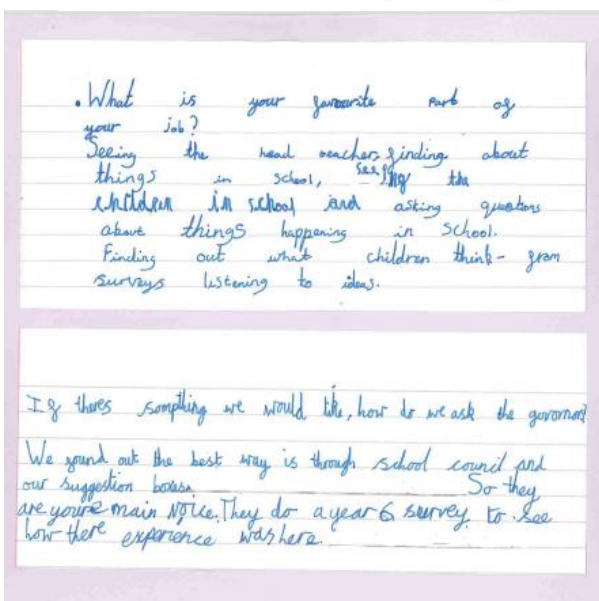 . What is your favourite part of
your job?
Seeing the head teachers finding about
things in school, seeing the
children in school and asking questions
about things happening in school.
Finding out what children think - from
surveys listening to ideas.
If theres sompthing we would like, how do we ask the govornors?
We found out the best way is through school council and
our suggestion boxes. So they
are youre main voice. They do a year 6 survey. to see
how there experience was here.